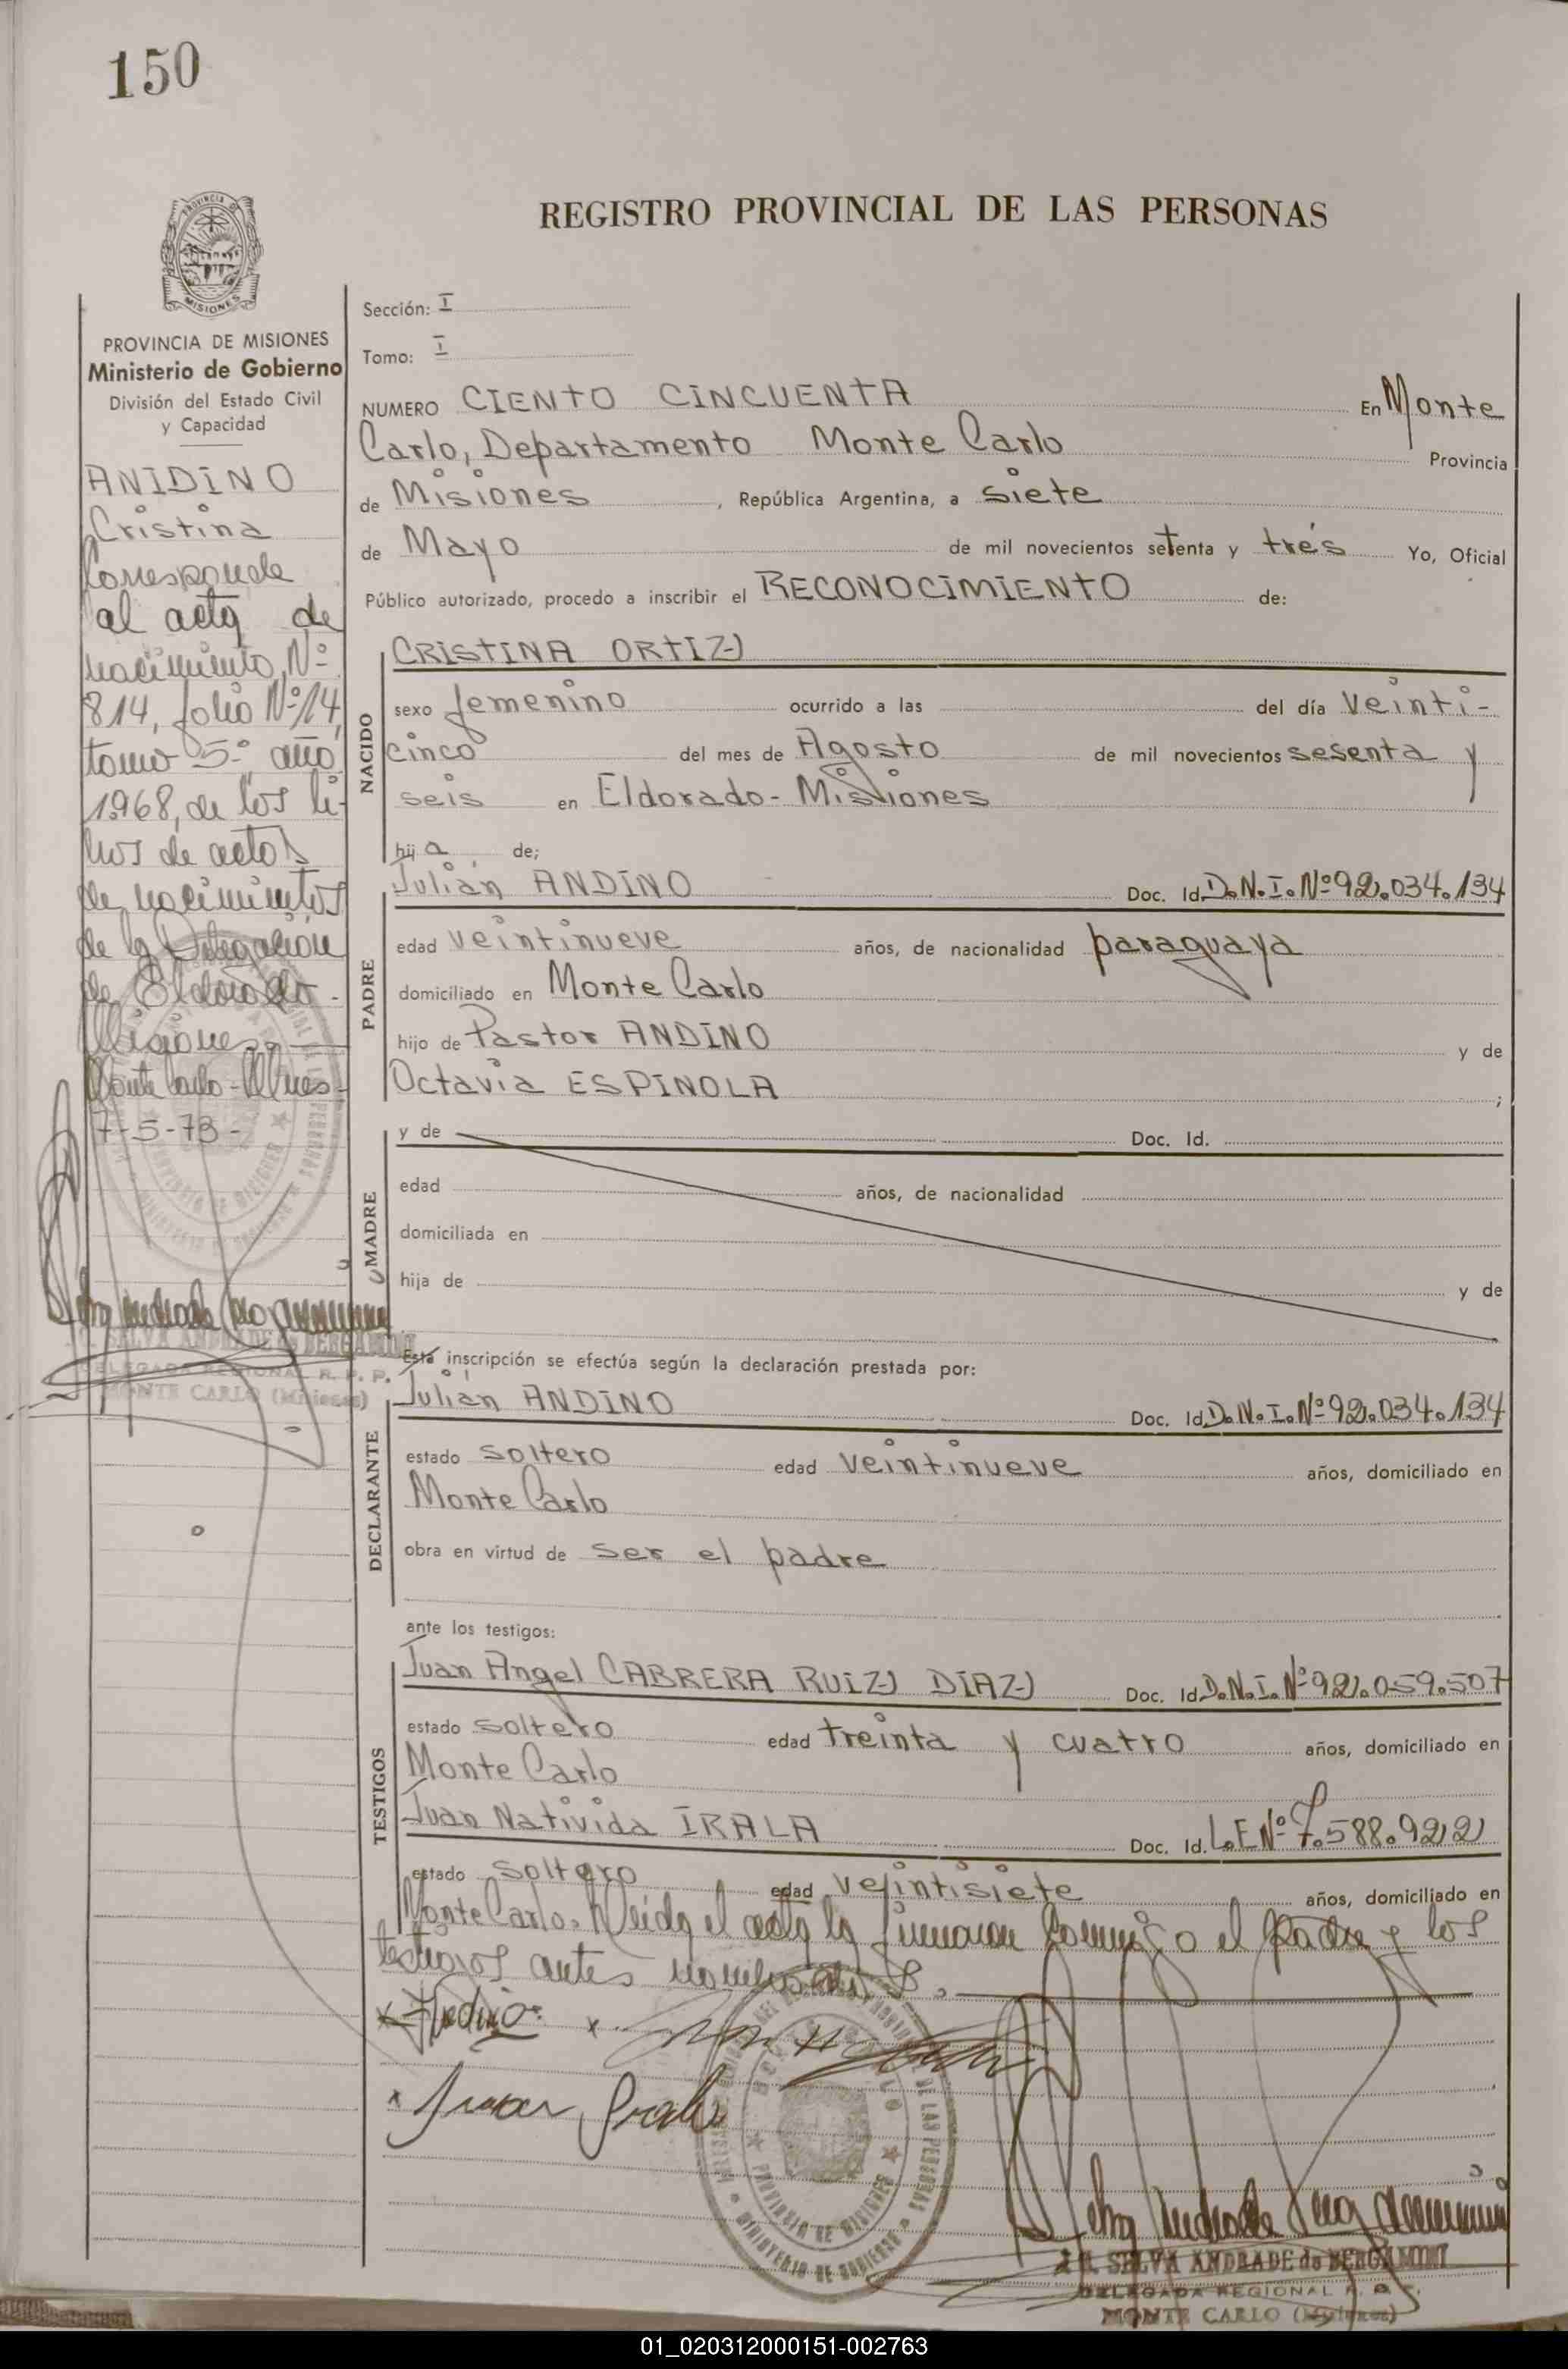 150
PROVINCIA DE
MISIONES
PROVINCIA DE MISIONES
Ministerio de Gobierno
División del Estado Civil
y Capacidad
ANIDINO
Cristina
Corresponde
al acta de
nacimiento Nº
814, folio Nº 14,
tomo 5º año
1968, de los li-
bros de actas
de nacimientos
de la Delegación
de Eldorado -
Misiones.
Monte Carlo - Mnes -
7-5-73-
SELVA ANDRADE de BERGAMINI
DELEGADA REGIONAL R. P. P.
MONTE CARLO (Misiones)
REGISTRO PROVINCIAL DE LAS PERSONAS
Sección: I
Tomo: I
NUMERO CIENTO CINCUENTA En Monte
Carlo, Departamento Monte Carlo Provincia
de Misiones, República Argentina, a siete
de Mayo de mil novecientos setenta y trés Yo, Oficial
Público autorizado, procedo a inscribir el RECONOCIMIENTO de:
NACIDO
CRISTINA ORTIZ
sexo femenino ocurrido a las del día veinti-
cinco del mes de Agosto de mil novecientos sesenta y
seis en Eldorado - Misiones
hija de;
PADRE
Julián ANDINO Doc. Id. D.N.I. Nº 92.034.134
edad veintinueve años, de nacionalidad paraguaya
domiciliado en Monte Carlo
hijo de Pastor ANDINO y de
Octavia ESPINOLA ;
MADRE
y de Doc. Id.
edad años, de nacionalidad
domiciliada en
hija de y de
Esta inscripción se efectúa según la declaración prestada por:
DECLARANTE
Julián ANDINO Doc. Id. D.N.I. Nº 92.034.134
estado soltero edad veintinueve años, domiciliado en
Monte Carlo
obra en virtud de ser el padre
ante los testigos:
TESTIGOS
Juan Angel CABRERA RUIZ DIAZ Doc. Id. D.N.I. Nº 92.059.507
estado soltero edad treinta y cuatro años, domiciliado en
Monte Carlo
Juan Nativida IRALA Doc. Id. L.E Nº 7.588.922
estado soltero edad veintisiete años, domiciliado en
Monte Carlo. Leida el acta la firmaron conmigo el padre y los
testigos antes nombrados.
Andino
Juan Irala
PROVINCIA DE MISIONES
MINISTERIO DE GOBIERNO
SELVA ANDRADE de BERGAMINI
DELEGADA REGIONAL R. P. P.
MONTE CARLO (Misiones)
01_020312000151-002763